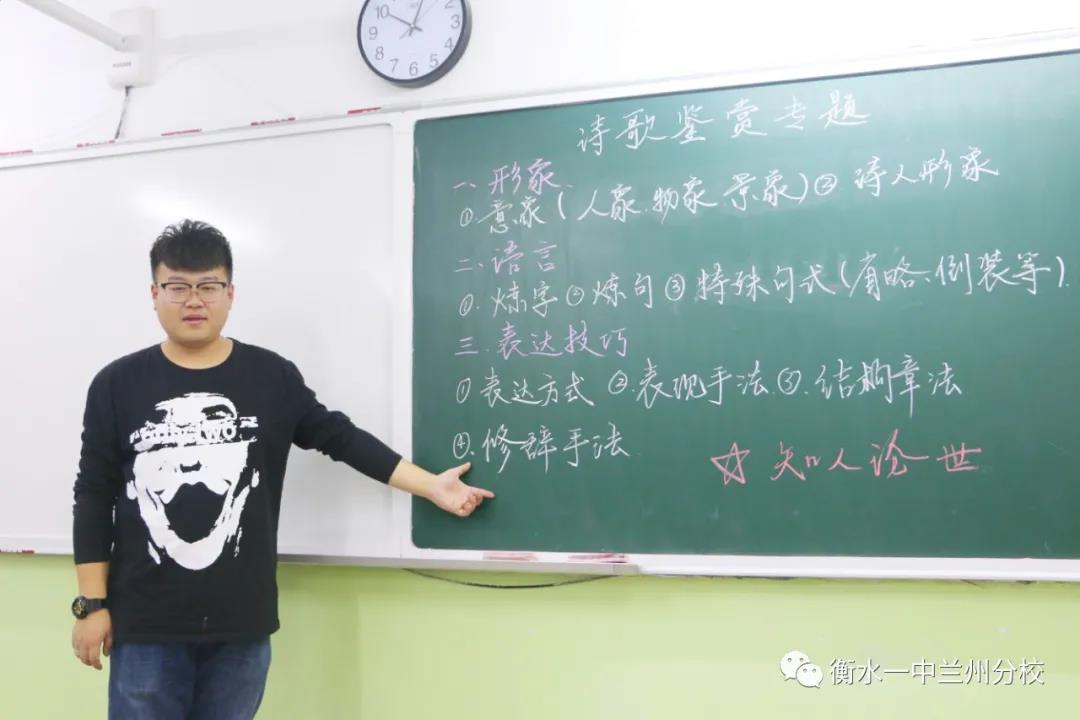 诗歌鉴赏专题
一、形象、
①.意象(人象.物象.景象)② 诗人形象
二、语言
①.炼字 ②炼句 ③特殊句式(省略、倒装等).
三.表达技巧
①表达方式 ②.表现手法③.结构章法
④.修辞手法
☆ 知人论世
衡水一中兰州分校